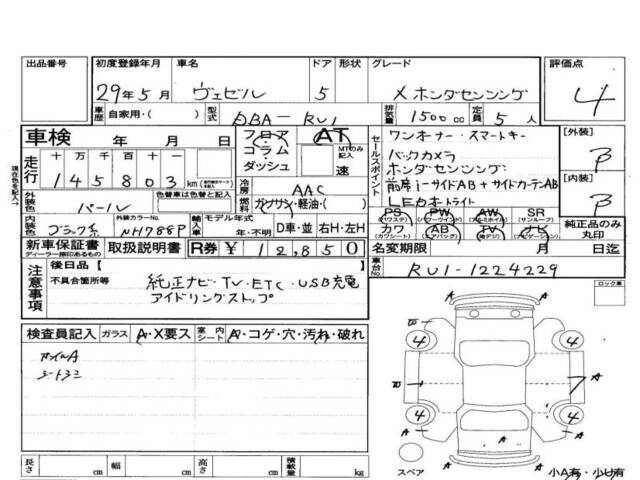 出品番号 初度登録年月 車名 ドア 形状 グレード 評価点
29年5月 ヴェゼル 5 X ホンダセンシング 4
車歴 自家用・( ) 型式 DBA-RU1 排気量 1500cc 定員 5人
車検 年 月 日 フロア コラム ダッシュ AT MTのみ記入 速
セールスポイント ワンオーナー スマートキー
バックカメラ
ホンダセンシング
前席i-サイドAB+サイドカーテンAB
LEDオートライト
[外装] B
[内装] B
現在色を記入→
走行 十 万 千 百 十 一
145803 km
外装色 パール 色替車は色替と記入
冷房 AAC
燃料 ガソリン・軽油・( )
PS (パワステ) PW (パワーウインド) AW (アルミホイル) SR (サンルーフ)
カワ (カワシート) AB (エアバッグ) TV (純テジ) ナビ (ナビゲーション)
純正品のみ丸印
内装色 ブラック系 外装カラーNo. NH788P 輸入車 モデル年式 年・不明 D車・並 右H・左H
新車保証書 ディーラー捺印あるもの 取扱説明書 R券 ¥12,850 名変期限 月 日迄
注意事項 後日品 [ ]
不具合箇所等 純正ナビ・TV・ETC・USB充電
アイドリングストップ
車台No. RU1-1224229
ロック車
検査員記入 ガラス A・X要ス 室内シート A・コゲ・穴・汚れ・破れ
W A A
4 4
W A
4 4
A A A
長さ cm 幅 cm 高さ cm 積載量 kg
スペア
小A有・小U有